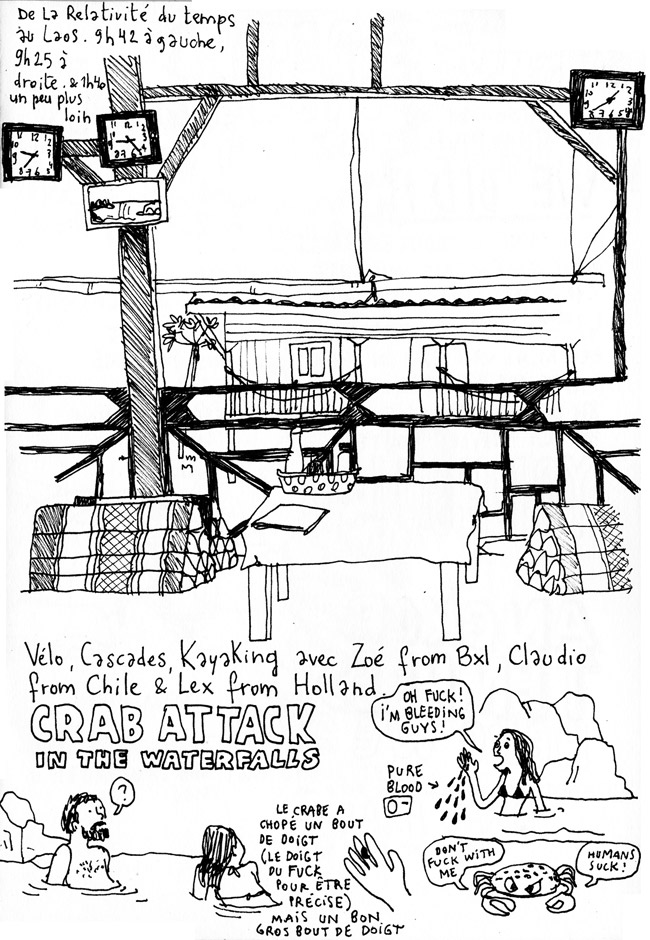 De La Relativité du temps
au Laos. 9h42 à gauche,
9h25 à
droite. & 1h40
un peu plus
loin
Vélo, Cascades, Kayaking avec Zoé from Bxl, Claudio
from Chile & Lex from Holland.
CRAB ATTACK
IN THE WATERFALLS
OH FUCK!
I'M BLEEDING
GUYS!
PURE
BLOOD
O-
?
LE CRABE A
CHOPÉ UN BOUT
DE DOIGT
(LE DOIGT
DU FUCK
POUR ÊTRE
PRÉCISE)
MAIS UN BON
GROS BOUT DE DOIGT
DON'T
FUCK WITH
ME
HUMANS
SUCK!